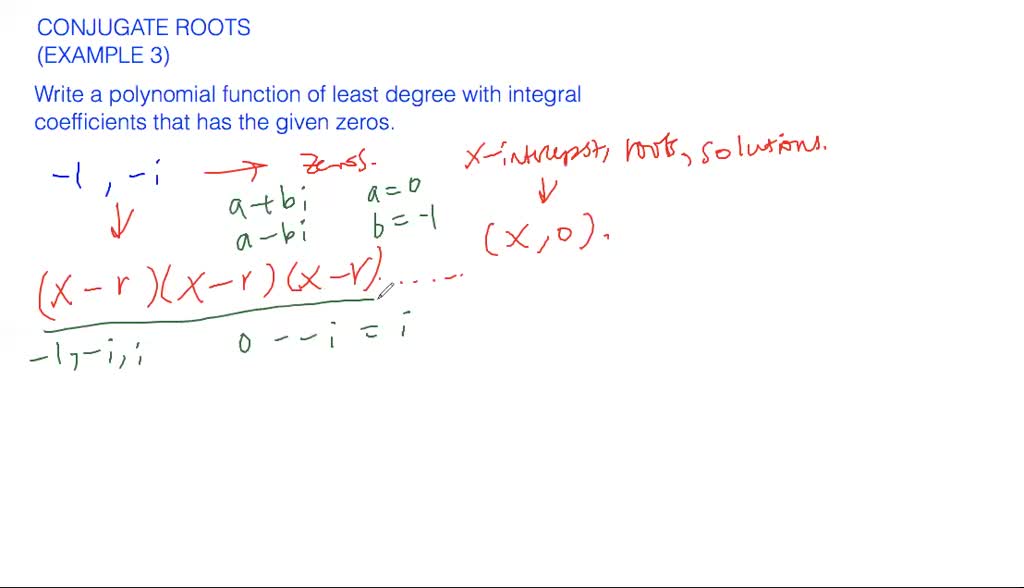 CONJUGATE ROOTS
(EXAMPLE 3)
Write a polynomial function of least degree with integral
coefficients that has the given zeros.
-1 , -i → zeros.
x-intercepts, roots, solutions.
↓
(x,0).
a+bi a=0
a-bi b=-1
↓
(x-r)(x-r)(x-r).......
-1,-i,i 0 - -i = i